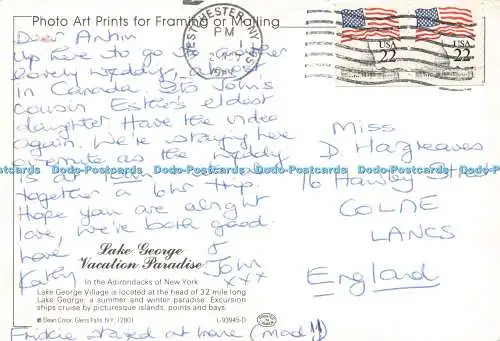 Photo Art Prints for Framing or Mailing
WESTCHESTER, NY
PM
USA
22
USA
22
up here to go to another
lovely wedding,
in Canada. It's John's
cousin Esther's eldest
daughter have the video
again. We're staying here
as the wedding
is at
together a 6hr trip.
Hope you are alright
love, we're both good.
love
Kath &
John
xxx
Miss
D. Hargreaves
16 Hawley Street
COLNE
LANCS
England
Dodo Postcards
Lake George
Vacation Paradise
In the Adirondacks of New York
Lake George Village is located at the head of 32 mile long
Lake George, a summer and winter paradise. Excursion
ships cruise by picturesque islands, points and bays.
© Dean Color, Glens Falls, N.Y. 12801
L-93945-D
stayed at home (mad!!)